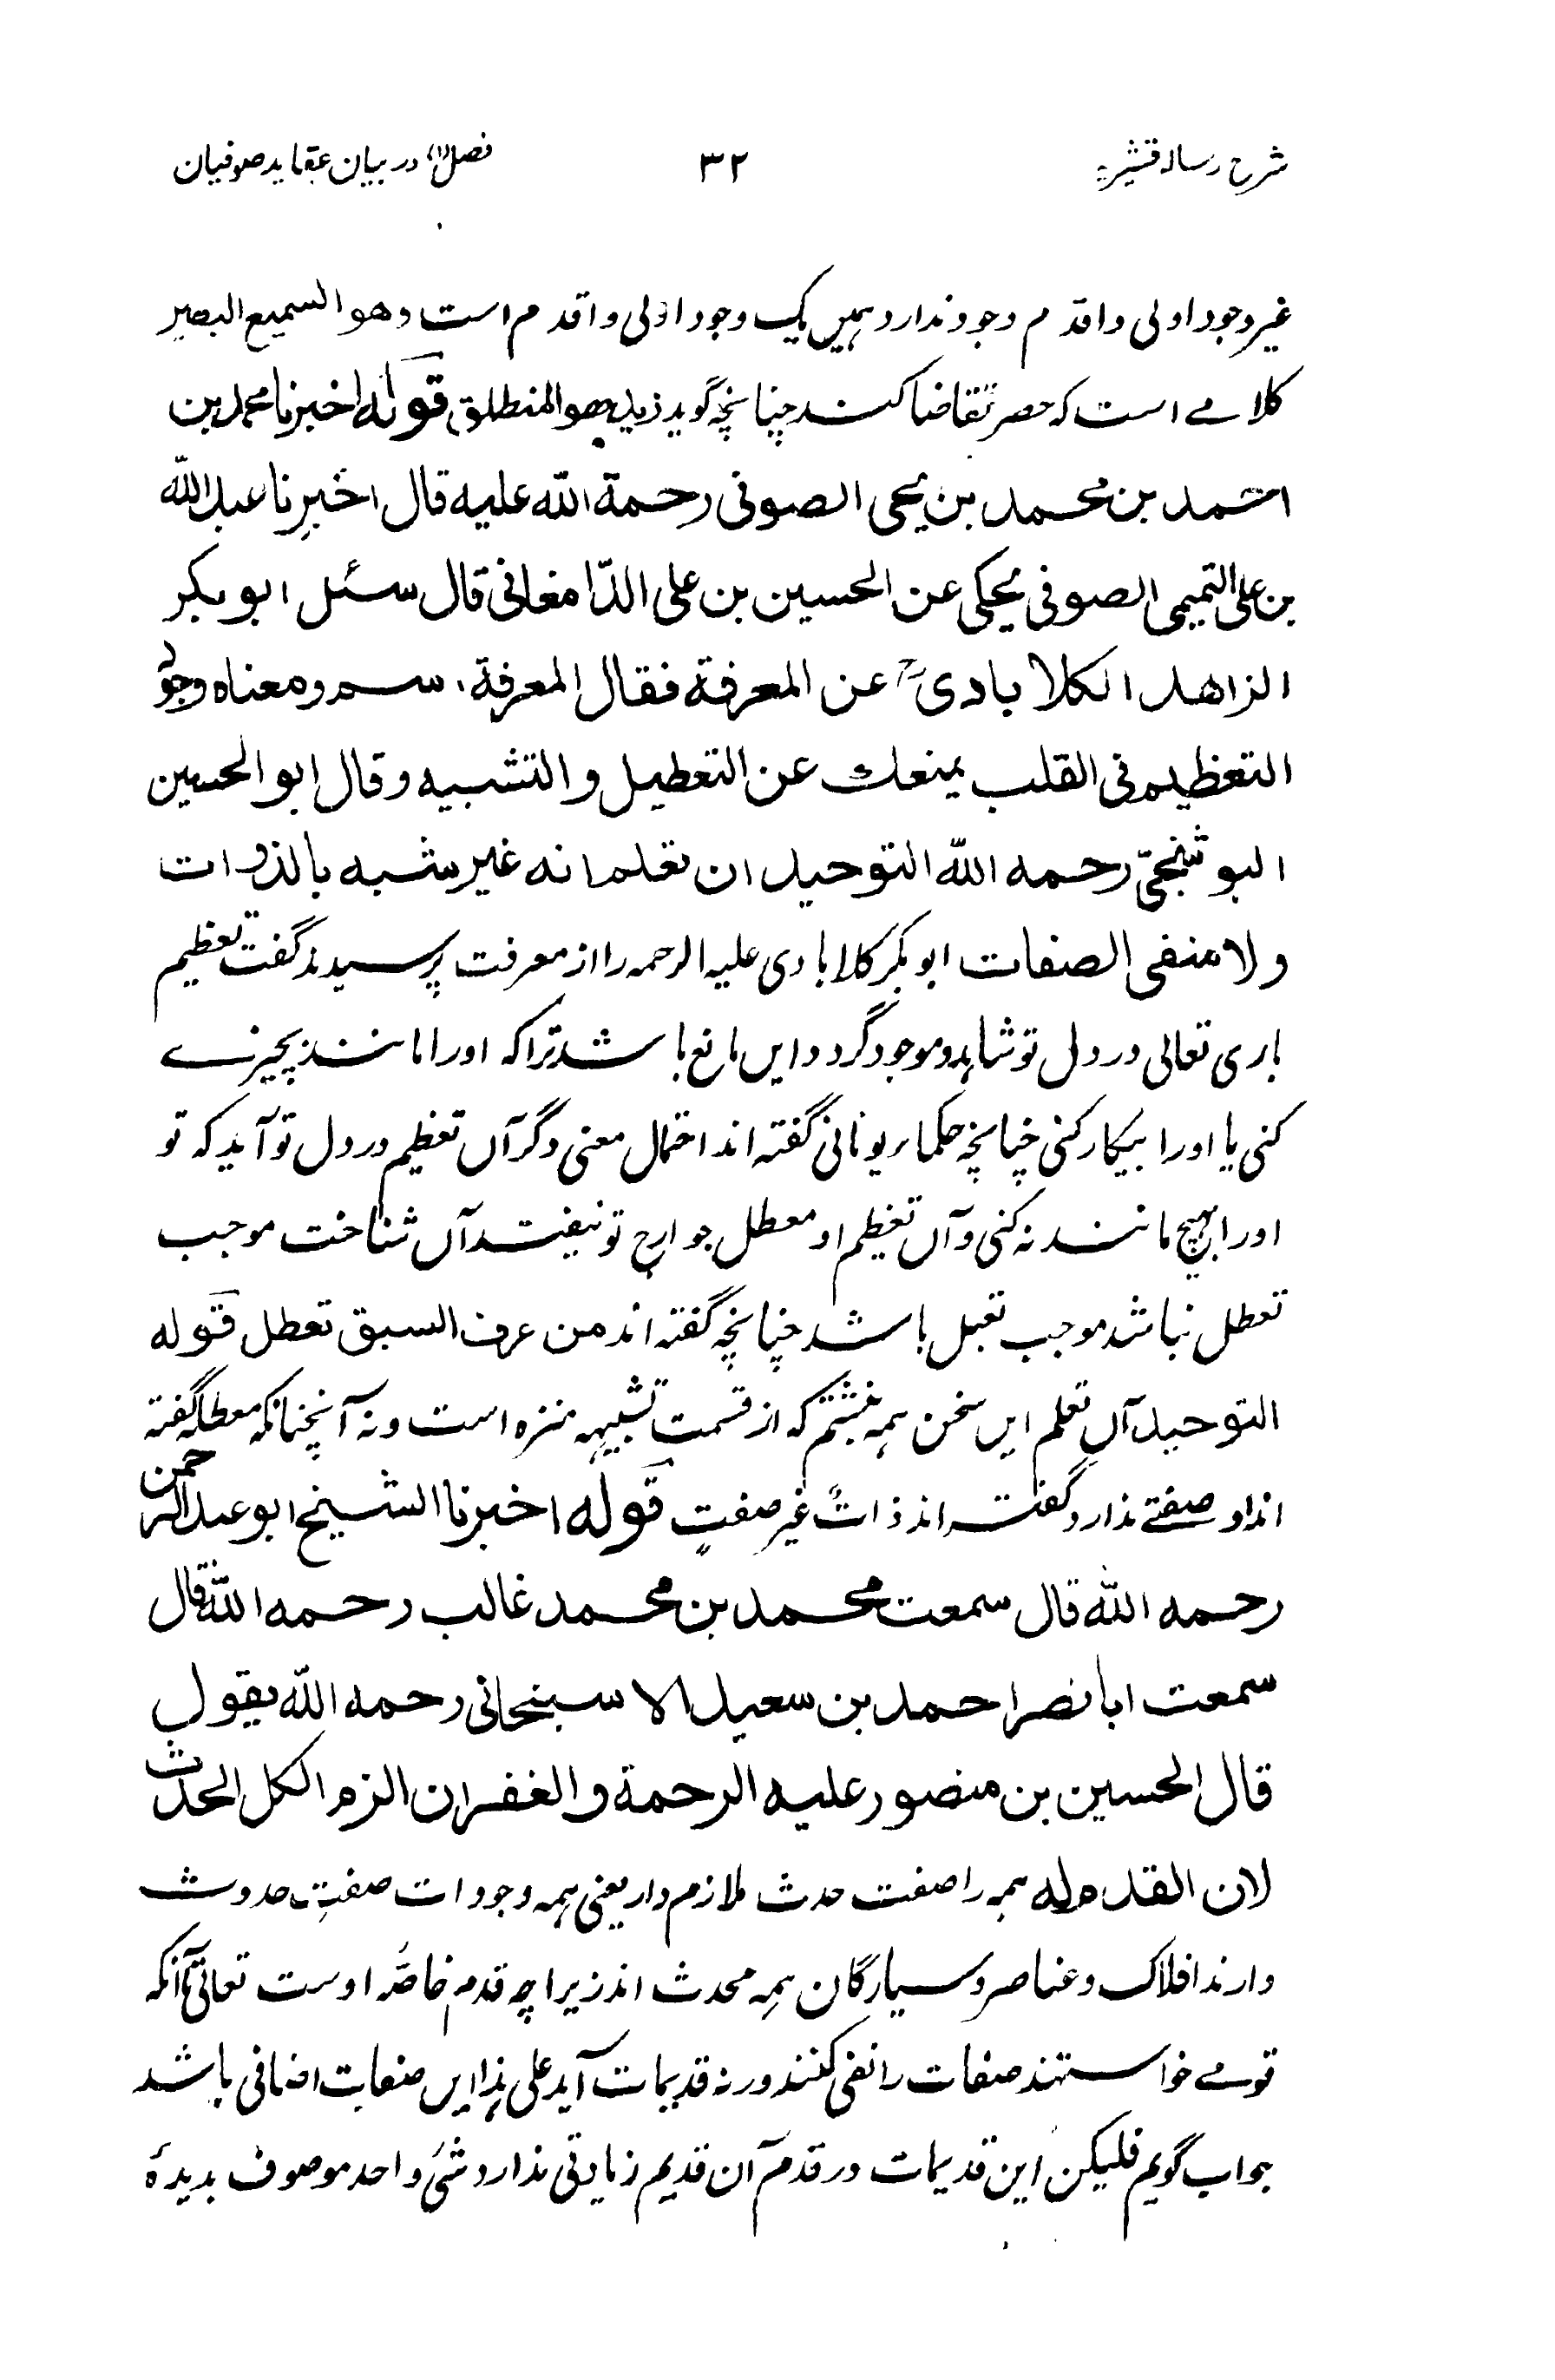 شرح رسالہ قشیریہ ۳۲ فصل (۱) در بیان عقاید صوفیان
غیر وجود اولی و اقدم وجود ندارد ہمیں یک وجود اولی و اقدم است و هو السمیع البصیر
کلامے است کہ حصر تقاضا کند چنانچہ گوید زید هو المنطلق قولہ اخبرنا محمد بن
احمد بن محمد بن یحی الصوفی رحمة اللّٰه علیه قال اخبرنا عبد اللّٰه
بن علی التمیمی الصوفی یحکی عن الحسین بن علی الدّامغانی قال سئل ابو بکر
الزاهد الکلابادیؒ عن المعرفة فقال المعرفة اسم و معناه وجود
التعظیم فی القلب یمنعك عن التعطیل و التشبیه و قال ابو الحسین
البوشنجیّ رحمه اللّٰه التوحید ان تعلم انه غیر مشبه بالذوات
و لا منفی الصفات ابو بکر کلابادی علیہ الرحمہ را از معرفت پرسیدند گفت تعظیم
باری تعالی در دل تو شاہد و موجود گردد و ایں مانع باشد ترا کہ او را مانند بچیزے
کنی یا او را بیکار کنی چنانچہ حکماء یونانی گفتہ اند احتمال معنی دگر آں تعظیم در دل تو آید کہ تو
او را بہیچ مانند نہ کنی و آں تعظیم او معطل جوارح تو نیفتد آں شناخت موجب
تعطل نباشد موجب تعبل باشد چنانچہ گفتہ اند من عرف السبق تعطل قولہ
التوحید آں تعلم ایں سخن ہمہ نبشتم کہ از قسمت تشبیہہ منزہ است و نہ آنچنانکہ معطلہ گفتہ
اند او صفتے ندارد گفتہ اند ذاتٌ غیر صفتٍ قولہ اخبرنا الشیخ ابو عبد الرحمن
رحمه اللّٰه قال سمعت محمد بن محمد غالب رحمه اللّٰه قال
سمعت ابا نصر احمد بن سعید الاسبنجانی رحمه اللّٰه یقول
قال الحسین بن منصور علیه الرحمة و الغفران الزم الکل الحدث
لان القدم له ہمہ را صفت حدث ملازم دار یعنی ہمہ وجودات صفتِ حدوث
دارند افلاک و عناصر و سیارگان ہمہ محدث اند زیراچہ قدم خاصّہ اوست تعالی آنکہ
قومے خواستند صفات را نفی کنند ورنہ قدیمات آید علی ہذا ایں صفات اضافی باشد
جواب گویم فلیکن این قدیمات در قدم آن قدیم زیادتی ندارد شیٔ واحد موصوف بدیدۂ